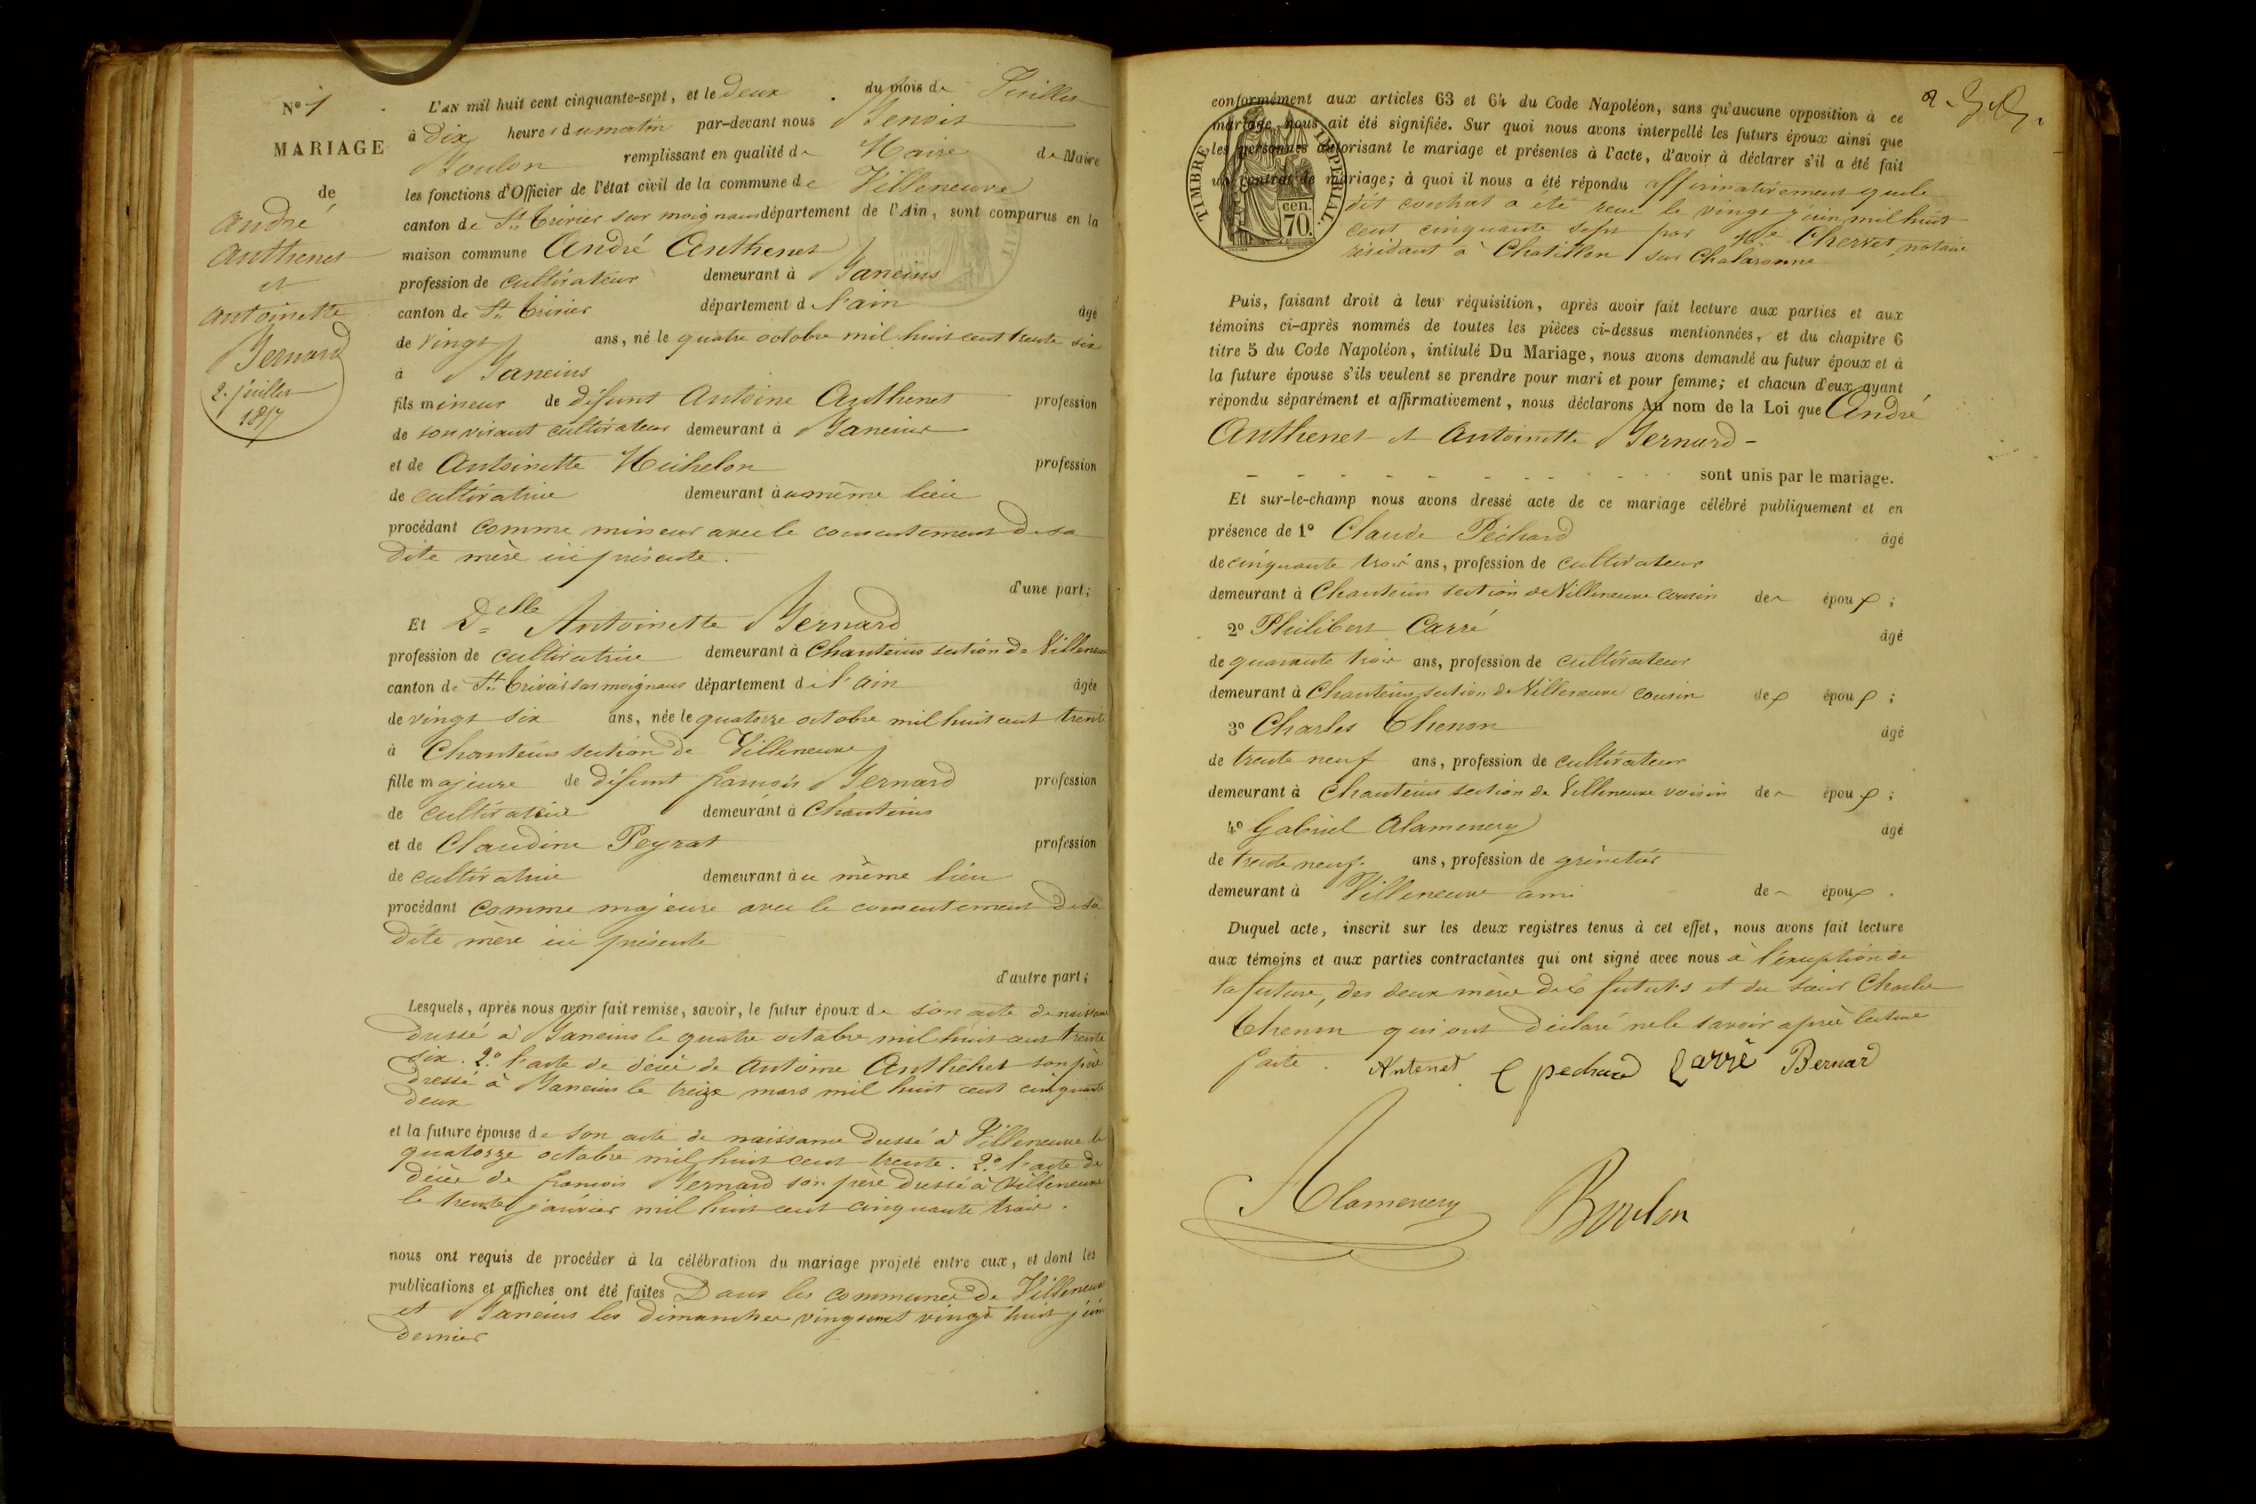 Nº 1
MARIAGE
de
André
Anthenet
et
Antoinette
Bernard
2. juillet
1857
L'AN mil huit cent cinquante-sept, et le deux du mois de Juillet
à dix heures du matin par-devant nous Benoit
Boulon remplissant en qualité de Maire de Maire
les fonctions d'Officier de l'état civil de la commune de Villeneuve
canton de St Trivier sur moignans département de l'Ain, sont comparus en la
maison commune André Anthenet
profession de cultivateur demeurant à Baneins
canton de St Trivier département de l'ain âgé
de vingt ans, né le quatre octobre mil huit cent trente six
à Baneins
fils mineur de défunt Antoine Anthenet profession
de son vivant cultivateur demeurant à Baneins
et de Antoinette Michelon profession
de cultivatrice demeurant au même lieu
procédant comme mineur avec le consentement de sa
dite mère ici présente.
d'une part;
Et Delle Antoinette Bernard
profession de cultivatrice demeurant à Chanteins section de Villeneuve
canton de St Trivier sur moignans département de l'ain âgée
de vingt six ans, née le quatorze octobre mil huit cent trente
à Chanteins section de Villeneuve
fille majeure de défunt françois Bernard profession
de cultivateur demeurant à Chanteins
et de Claudine Peyrat profession
de cultivatrice demeurant au même lieu
procédant comme majeure avec le consentement de sa
dite mère ici présente
d'autre part;
Lesquels, après nous avoir fait remise, savoir, le futur époux de son acte de naissance
dressé à Baneins le quatre octobre mil huit cent trente
six. 2º l'acte de décès de Antoine Anthenet son père
dressé à Baneins le treize mars mil huit cent cinquante
deux
et la future épouse de son acte de naissance dressé à Villeneuve le
quatorze octobre mil huit cent trente. 2º l'acte de
décès de françois Bernard son père dressé à Villeneuve
le trente janvier mil huit cent cinquante trois.
nous ont requis de procéder à la célébration du mariage projeté entre eux, et dont les
publications et affiches ont été faites Dans les communes de Villeneuve
et Baneins les dimanches vingt un et vingt huit juin
dernier
conformément aux articles 63 et 64 du Code Napoléon, sans qu'aucune opposition à ce
mariage nous ait été signifiée. Sur quoi nous avons interpellé les futurs époux ainsi que
les personnes autorisant le mariage et présentes à l'acte, d'avoir à déclarer s'il a été fait
un contrat de mariage; à quoi il nous a été répondu affirmativement que le
dit contrat a été reçu le vingt juin mil huit
cent cinquante sept par Me Chervet, notaire
résidant à Chatillon sur Chalaronne
TIMBRE IMPÉRIAL.
70. cen.
Puis, faisant droit à leur réquisition, après avoir fait lecture aux parties et aux
témoins ci-après nommés de toutes les pièces ci-dessus mentionnées, et du chapitre 6
titre 5 du Code Napoléon, intitulé Du Mariage, nous avons demandé au futur époux et à
la future épouse s'ils veulent se prendre pour mari et pour femme; et chacun d'eux ayant
répondu séparément et affirmativement, nous déclarons Au nom de la Loi que André
Anthenet et Antoinette Bernard -
sont unis par le mariage.
Et sur-le-champ nous avons dressé acte de ce mariage célébré publiquement et en
présence de 1º Claude Péchard âgé
de cinquante trois ans, profession de cultivateur
demeurant à Chanteins section de Villeneuve cousin de époux;
2º Philibert Carré âgé
de quarante trois ans, profession de cultivateur
demeurant à Chanteins section de Villeneuve cousin de époux;
3º Charles Thenon âgé
de trente neuf ans, profession de cultivateur
demeurant à Chanteins section de Villeneuve voisin de époux;
4º Gabriel Alamenery âgé
de trente neuf ans, profession de
demeurant à Villeneuve ami de époux.
Duquel acte, inscrit sur les deux registres tenus à cet effet, nous avons fait lecture
aux témoins et aux parties contractantes qui ont signé avec nous à l'exception de
la future, des deux mères des futurs et du sieur Charles
Thenon qui ont déclaré ne le savoir après lecture
faite. Antenet C pechard Carré Bernard
Alamenery Boulon